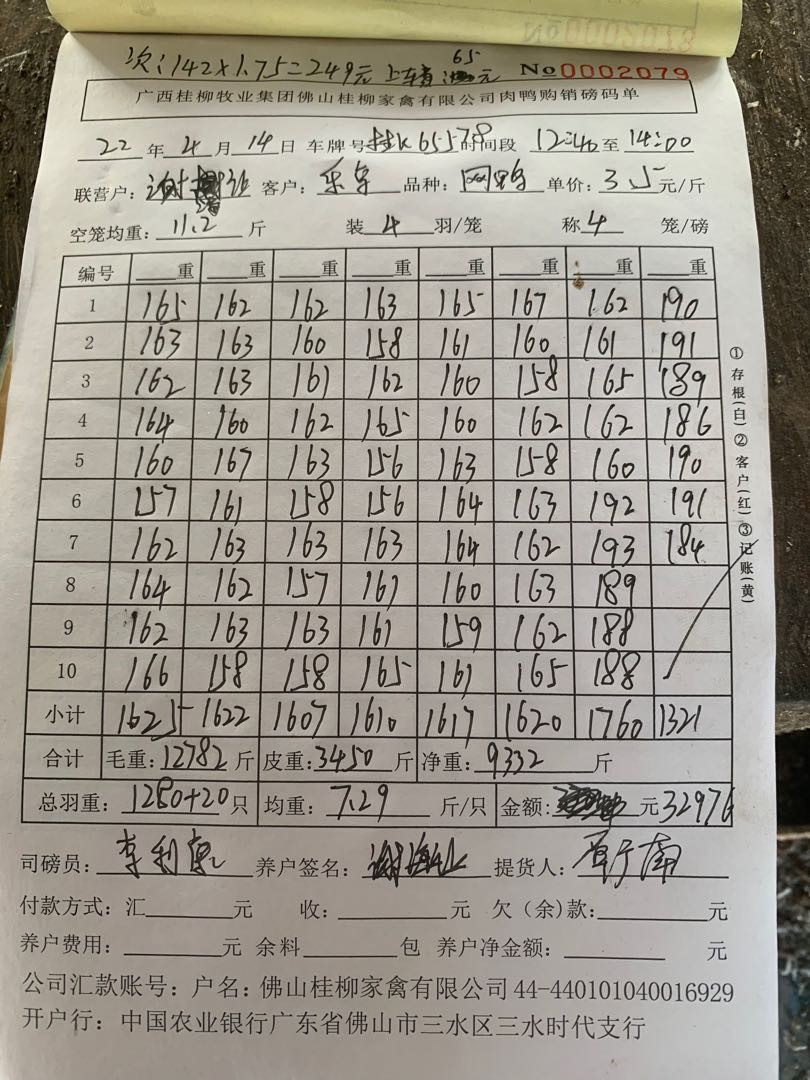 次:142×1.75=249元 上车费 65元 No0002079
广西桂柳牧业集团佛山桂柳家禽有限公司肉鸭购销磅码单
22年4月14日 车牌号 桂K65578 时间段 12:40至14:00
联营户: 客户: 品种: 单价:3.5元/斤
空笼均重:11.2斤 装4羽/笼 称4笼/磅
编号 重 重 重 重 重 重 重 重
1 165 162 162 163 165 167 162 190
2 163 163 160 158 161 160 161 191
3 162 163 161 162 160 158 165 189
4 164 160 162 165 160 162 162 186
5 160 167 163 156 163 158 160 190
6 157 161 158 156 164 163 192 191
7 162 163 163 163 164 162 193 184
8 164 162 157 161 160 163 189
9 162 163 163 161 159 162 188
10 166 158 158 165 161 165 188
小计 1625 1622 1607 1610 1617 1620 1760 1321
合计 毛重:12782斤 皮重:3450斤 净重:9332斤
总羽重:1280+20只 均重:7.29斤/只 金额: 元32976
司磅员: 养户签名: 提货人:
付款方式:汇 元 收: 元 欠(余)款: 元
养户费用: 元 余料 包 养户净金额: 元
公司汇款账号:户名:佛山桂柳家禽有限公司44-440101040016929
开户行:中国农业银行广东省佛山市三水区三水时代支行
①存根(白)②客户(红)③记账(黄)